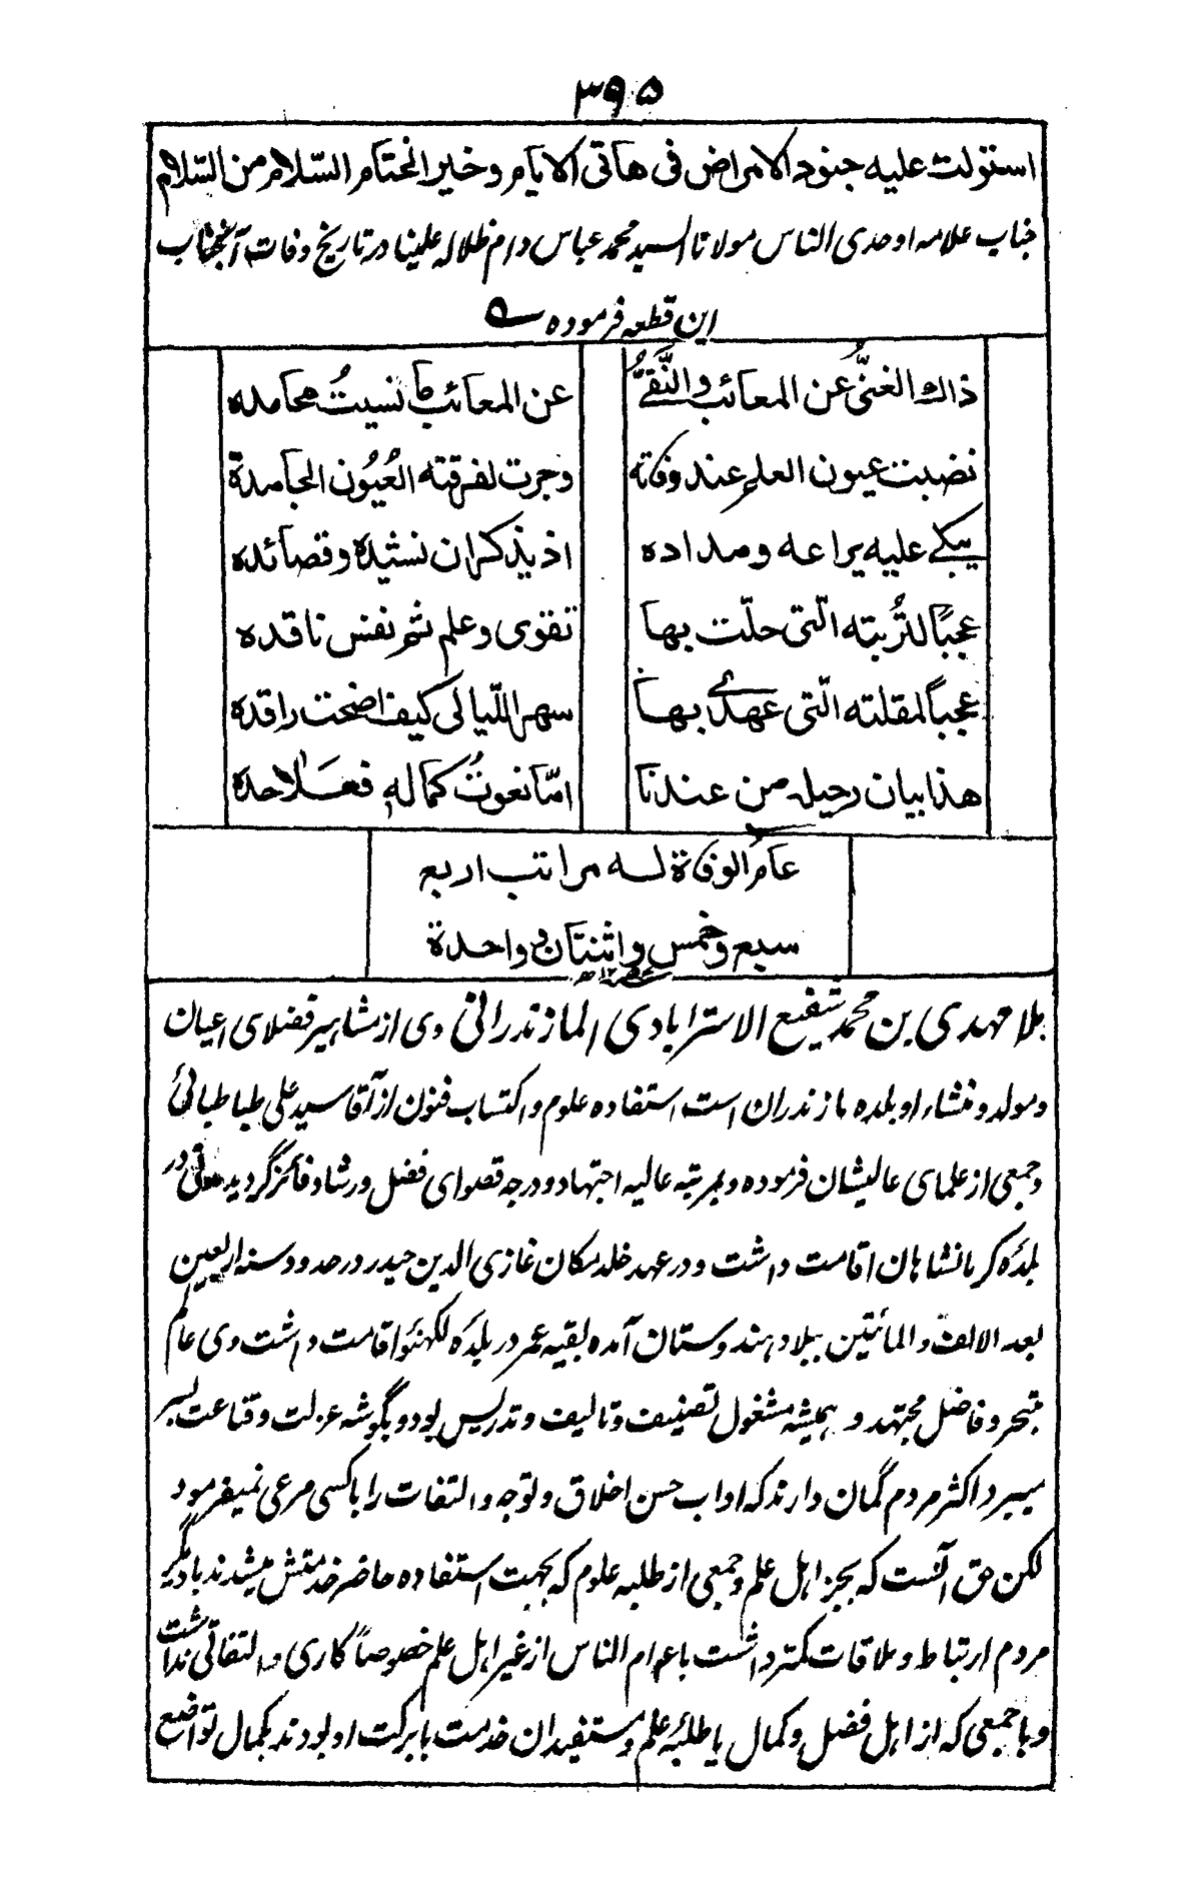 ۳۹۵
استولت عليه جنود الامراض فى هاتى الايام وخير الختام السّلام من السّلام
جناب علامه اوحدى الناس مولانا السيد محمد عباس دام ظلاله علينا در تاريخ وفات آنجناب
اين قطعه فرموده
ذاك الغنىُّ عن المعائب والنَّقىُّ عن المعائب ما نسيتُ محامده
نضبت عيون العلم عند وفاته وجرت لفرقته العُيُون الجامدة
يبكى عليه يراعه ومداده اذ يذكران نشيده وقصائده
عجبًا لتُربته الّتى حلّت بها تقوى وعلم ثم نفس ناقده
عجبًا لمقلته الّتى عهدى بها سهر اللّيالى كيف اضحت راقدة
هذا بيان رحيله من عندنا امّا نعوتُ كماله فعلاحدة
عام الوفاة لسه مراتب اربع
سبع وخمس واثنتان وواحدة
ملا مهدى بن محمد شفيع الاسترابادى المازندرانى وى از مشاهير فضلاى اعيان
ومولد و منشاء او بلده مازندران است استفاده علوم و اكتساب فنون از آقا سيد على طباطبائى
و جمعى از علماى عاليشان فرموده و بمرتبه عاليه اجتهاد و درجه قصواى فضل و رشاد فائز گرديد مدتى در
بلدۀ كرمانشاهان اقامت داشت و در عهد خلد مكان غازى الدين حيدر در حدود سنه اربعين
بعد الالف و المائتين ببلاد هندوستان آمده بقيه عمر در بلدۀ لكهنؤ اقامت داشت وى عالم
متبحر و فاضل مجتهد و هميشه مشغول تصنيف و تاليف و تدريس بود و بگوشه عزلت و قناعت بسر
ميبرد اكثر مردم گمان دارند كه اداب حسن اخلاق و توجه و التفات را با كسى مرعى نميفرمود
لكن حق آنست كه بجز اهل علم و جمعى از طلبه علوم كه بجهت استفاده حاضر خدمتش ميشدند با ديگر
مردم ارتباط و ملاقات كمتر داشت با عوام الناس از غير اهل علم خصوصاً كارى و التفاتى نداشت
و با جمعى كه از اهل فضل و كمال يا طلبۀ علم و مستفيدان خدمت با بركت او بودند بكمال تواضع